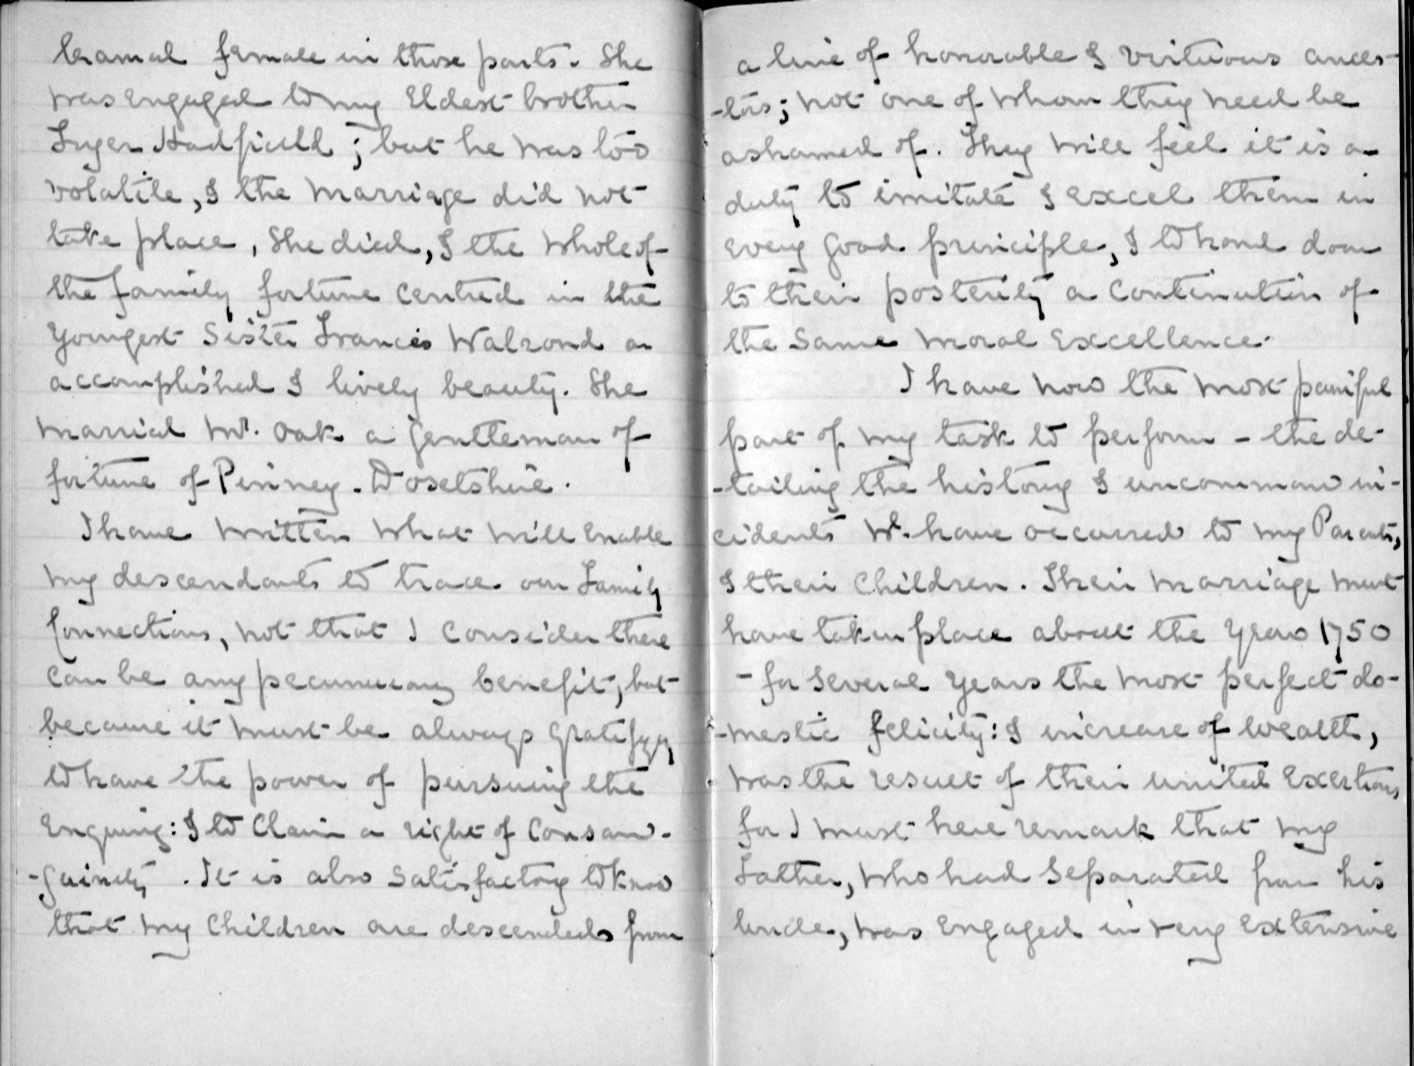 learned female in those parts. She
was engaged to my Eldest brother
Hadfield; but he was too
volatile, & the marriage did not
take place, She died, & the whole of
the family fortune centred in the
Youngest Sister Frances Walrond an
accomplished & lively beauty. She
married Mr. Oak a gentleman of
fortune of Pinney. Dosetshire.
I have written what will enable
my descendants to trace our Family
Connections, not that I consider there
can be any pecuniary benefit, but
because it must be always gratifyg
to have the power of pursuing the
Enquiry: & to Claim a right of Consan-
-guinity. It is also satisfactory to know
that my Children are descended from
a line of honorable & virtuous ances-
-tors; not one of whom they need be
ashamed of. They will feel it is a
duty to imitate & excel them in
every good principle, & to hand down
to their posterity a continuation of
the same moral excellence.
I have now the most painful
part of my task to perform - the de-
-tailing the history & uncommon in-
cidents wh. have occurred to my Parents,
& their Children. Their marriage must
have taken place about the year 1750
- for several years the most perfect do-
-mestic felicity: & increase of wealth,
was the result of their united Exertions
for I must here remark that my
Father, who had separated from his
Uncle, was engaged in very extensive